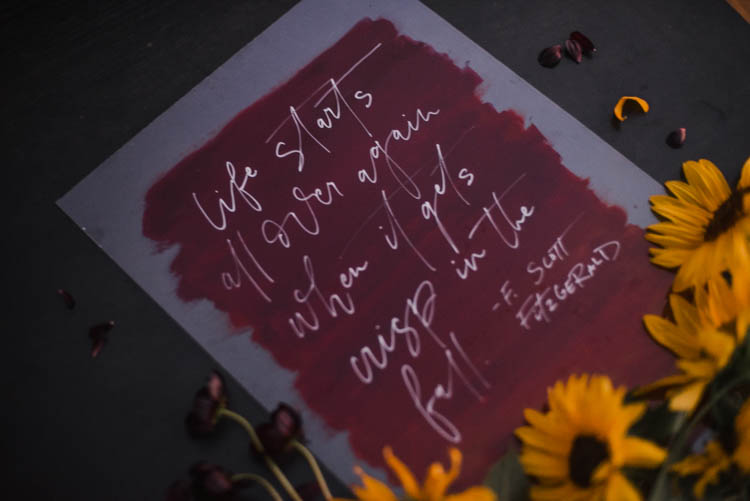 life starts
all over again
when it gets
crisp in the
fall.
- F. SCOTT
FITZGERALD